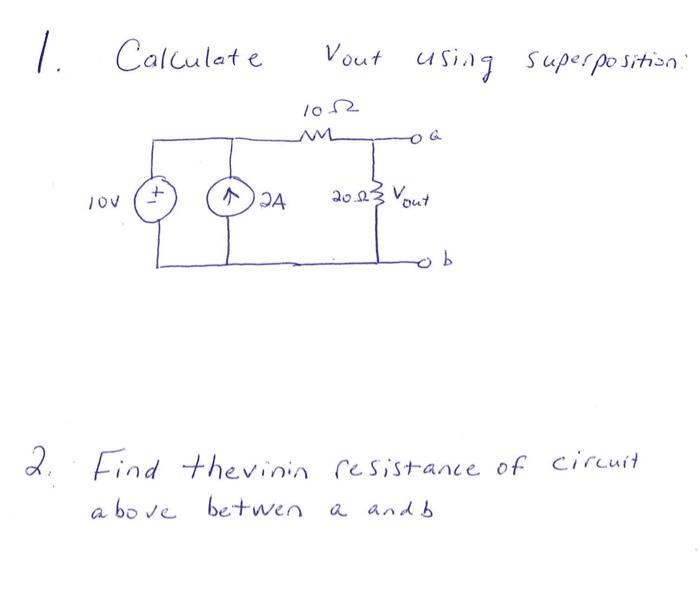 1. Calculate Vout using superposition:
10Ω
a
10V + - ↑ 2A 20Ω Vout
b
2. Find thevinin resistance of circuit
above betwen a and b